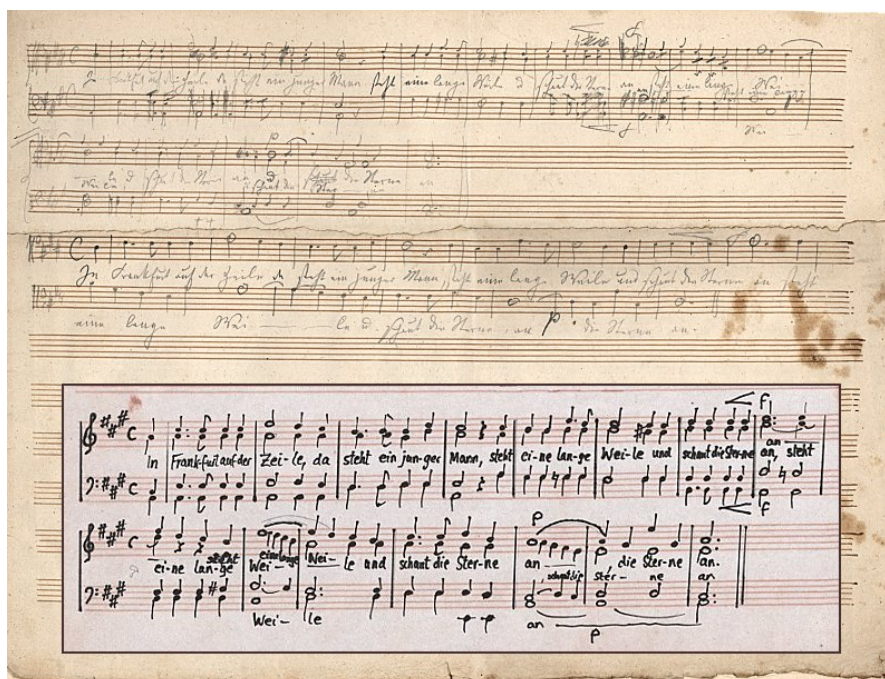 In Frankfurt auf der Zeile da steht ein junger Mann steht eine lange Weile u schaut die Sterne an steht eine lange Wei
Wei
le u schaut die Sterne an
In Frankfurt auf der Zeile da steht ein junger Mann, steht eine lange Weile und schaut die Sterne an steht
eine lange Wei — le u. schaut die Sterne an p die Sterne an.
f
an
In Frankfurt auf der Zei-le, da steht ein junger Mann, steht ei-ne lan-ge Wei-le und schaut die Sterne an, steht
f
p
steht eine lange
ei-ne lan-ge Wei- Wei- le und schaut die Ster-ne an die Ster-ne an.
schaut die Ster- ne an
Wei- le an
p